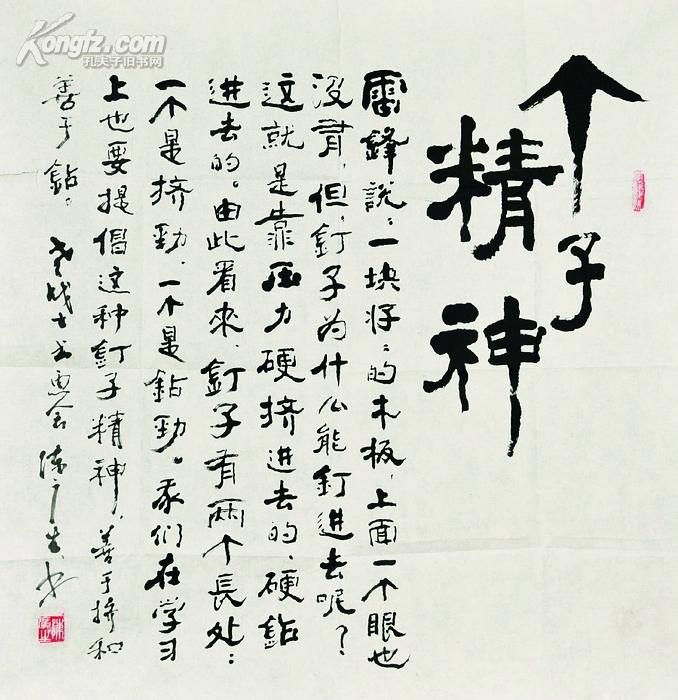 Kongfz.com
孔夫子旧书网
个子
精神
雷锋說：一块好：的木板，上面一个眼也
没有，但，釘子为什么能釘进去呢？
这就是靠压力硬挤进去的，硬鉆
进去的。由此看來，釘子有两个長处：
一个是挤勁，一个是鉆勁。我们在学习
上也要提倡这种釘子精神，善于挤和
善于鉆。 老战士书画会 陈广生书